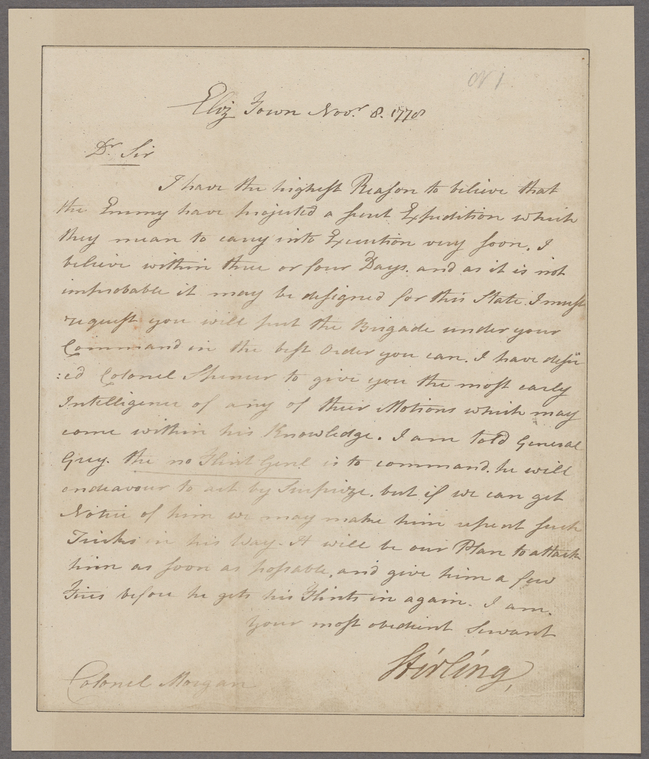 No 1
Eliz Town Novr. 8. 1778
Dr Sir
I have the highest Reason to believe that
the Enemy have projected a secret Expedition which
they mean to carry into Execution very soon, I
believe within three or four Days. and as it is not
improbable it may be designed for this State. I must
request you will put the Brigade under your
Command in the best Order you can. I have desir
:ed Colonel Spencer to give you the most early
Intelligence of any of their Motions which may
come within his Knowledge. I am told General
Grey. the no Flint Genl is to command. he will
endeavour to act by Surprize. but if we can get
Notice of him we may make him repent such
Tricks in his Way. It will be our Plan to attack
him as soon as possable, and give him a few
Fires before he gets his Flints in again. I am.
Your most obedient Servant
Stirling,
Colonel Morgan